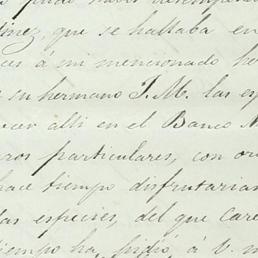 pudo haber desempeña
tinez, que se hallaba en
ces á mi mencionado he
e su hermano J. M. las es
ocer alli en el Banco N
ros particulares, con or
hace tiempo disfrutaria
las especies, del que care
tiempo ha, pidió á V. m